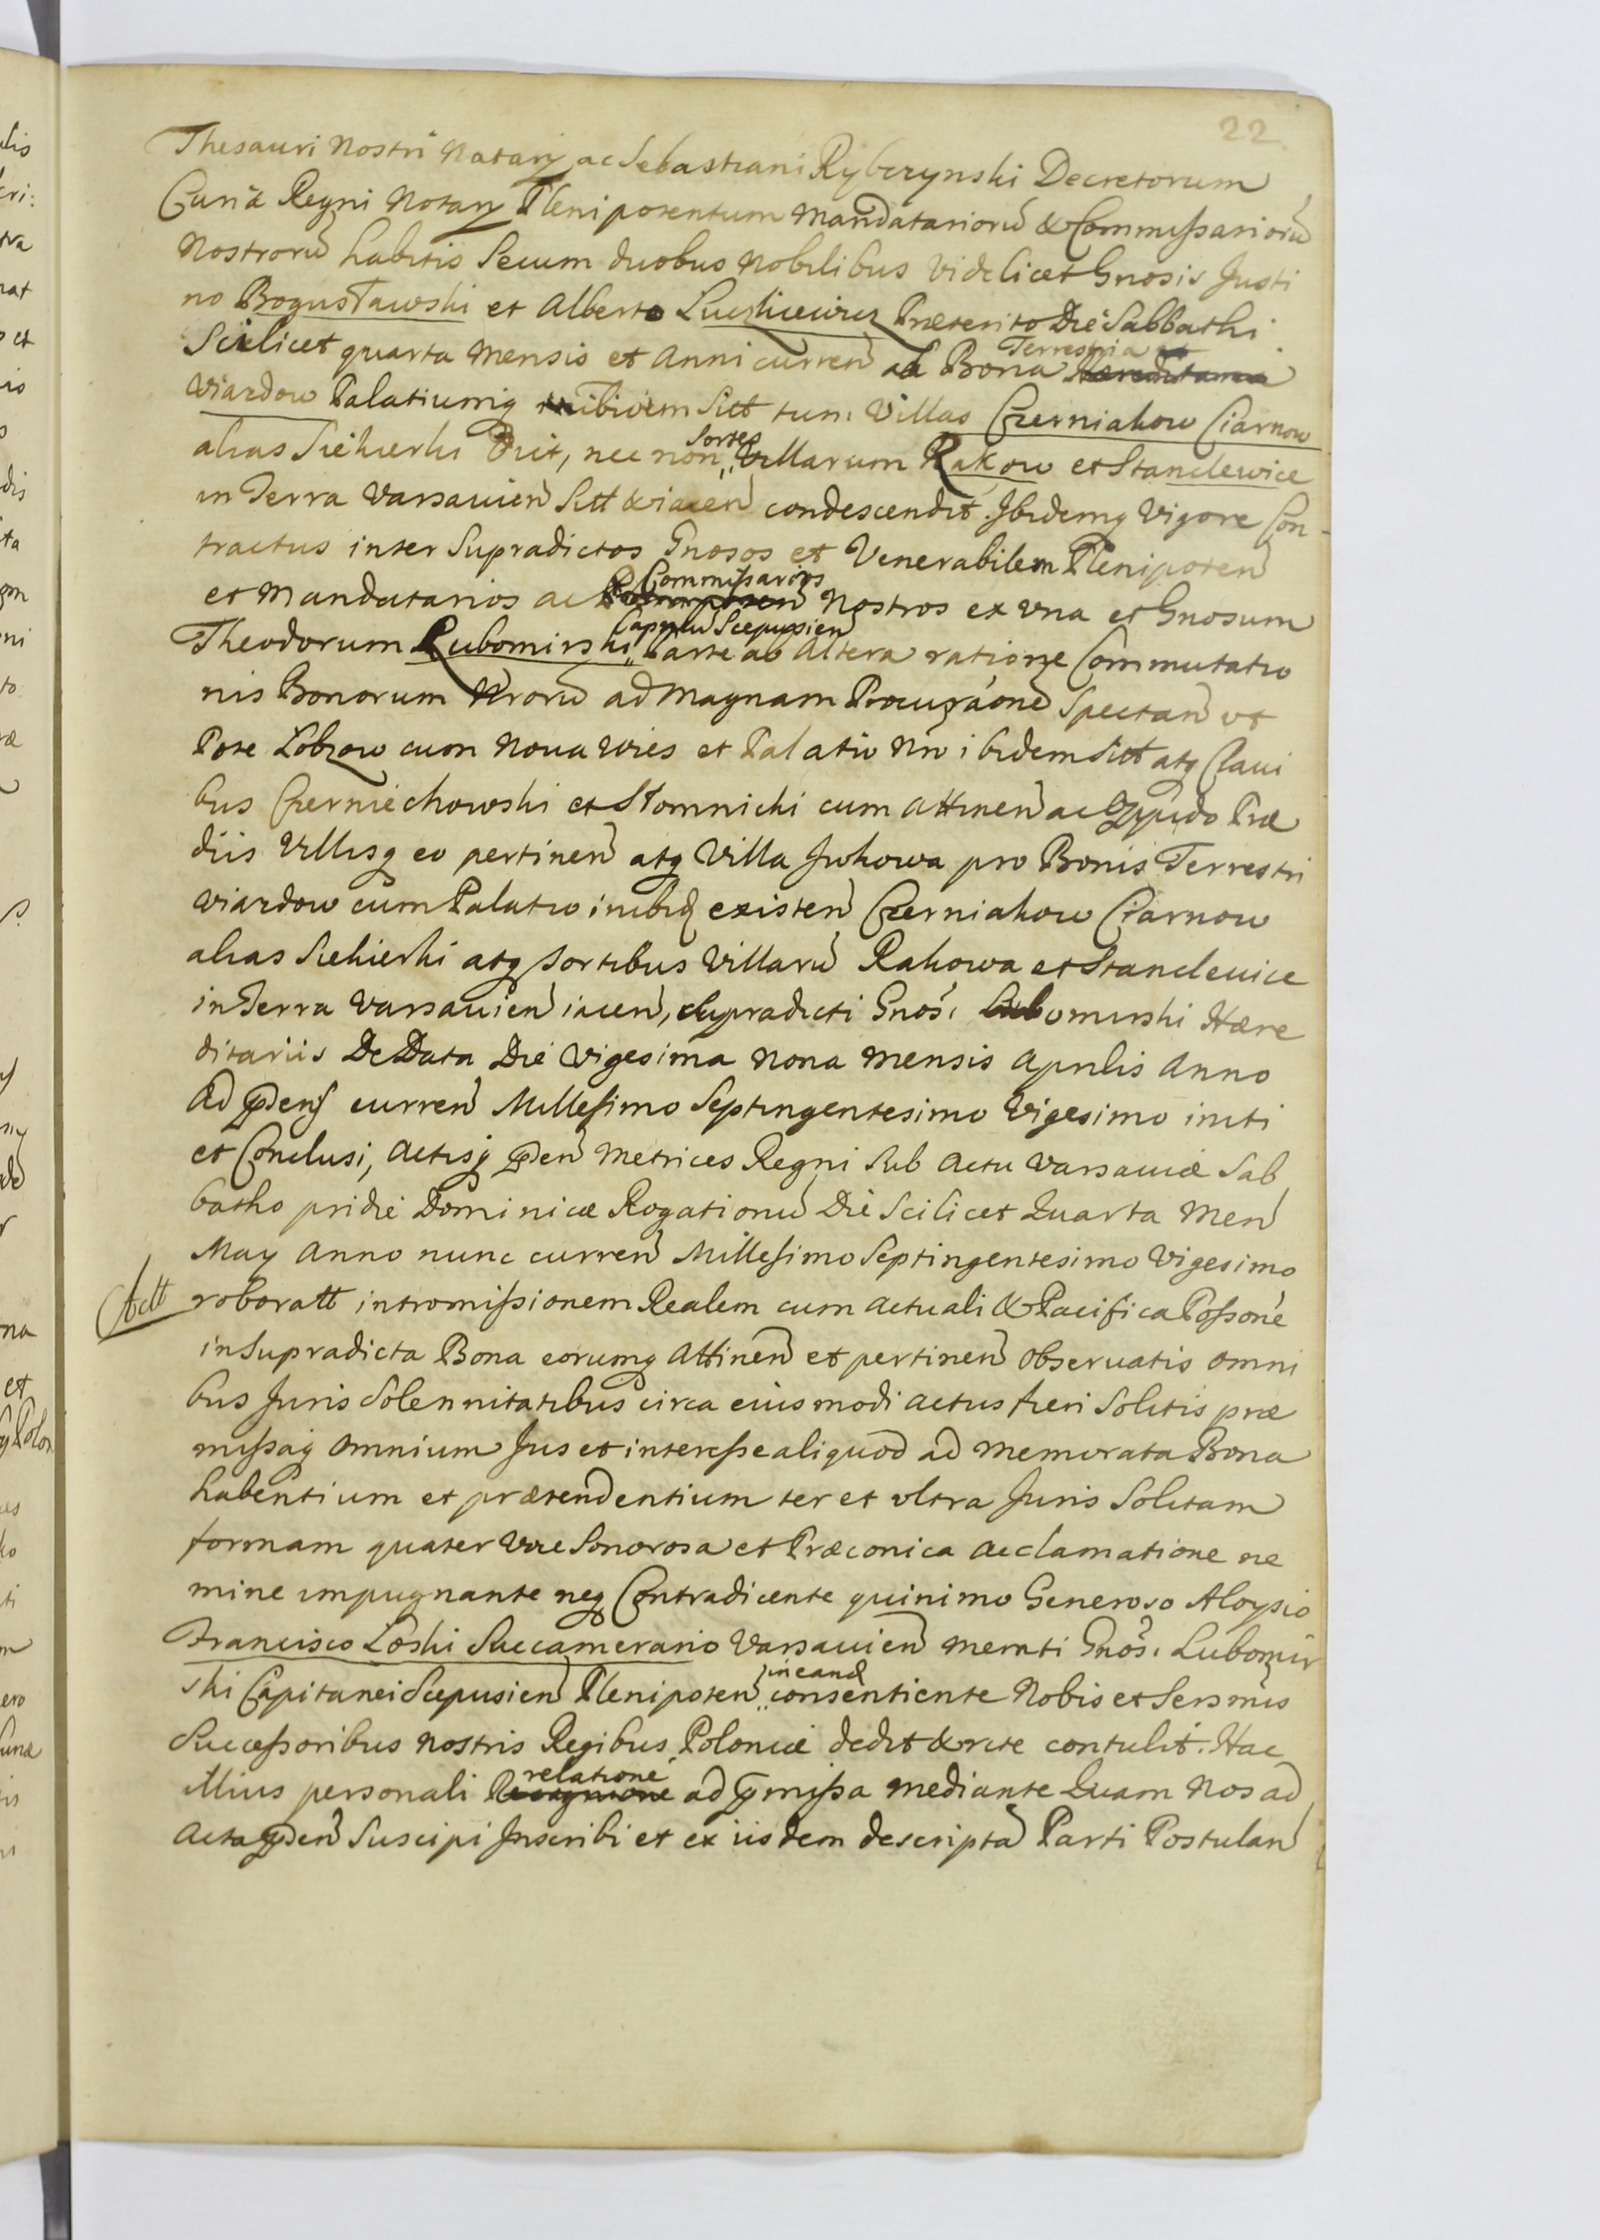 22
Thesauri Nostri Notarij ac Sebastiani Rybczynski Decretorum
Curiæ Regni Notarij Plenipotentum Mandatariorū & Commissariorū
Nostrorū habitis Secum duobus Nobilibus videlicet Gnosis Justi
no Bogusławski et Alberto Præterito Die Sabbathi
Scilicet quarta Mensis et Anni curren ad Bona Terrestria
Viazdow Palatiumq ibidem Sitt tum Villas Czerniakow Ciarnow
alias Siekierki Dict, nec non Sortes Villarum Rakow et Stanclewice
in Terra Varsavien Sitt & iacen condescendit. Ibidemq Vigore Con-
tractus inter Supradictos Gnosos et Venerabilem Plenipoten
et Mandatarios ac Commissarios Nostros ex vna et Gnosum
Theodorum Lubomirski Capneū Scepusien Parte ab Altera ratione Commutatio
nis Bonorum Nrorū ad Magnam Procuraōne Spectan vt
Pote Lobzow cum Nova Wies et Palatio Nro ibidem Sitt atq Clavi
bus Czerniechowski et Słomnicki cum Attinen ac Oppido Præ
diis Villisq eo pertinen atq Villa Jwkowa pro Bonis Terrestri
Viazdow cum Palatio inibiq existen Czerniakow Ciarnow
alias Siekierki atq Sortibus Villarū Rakowa et Stanclewice
in Terra Varsavien iacen, Supradicti Gnosi Lubomirski Hære
ditariis De Data Die Vigesima Nona Mensis Aprilis Anno
Ad præns curren Millesimo Septingentesimo Vigesimo initi
et Conclusi, Actisq præn Metrices Regni Sub Actu Varsaviæ Sab
batho pridie Dominicæ Rogationū Die Scilicet Quarta Men
May Anno nunc curren Millesimo Septingentesimo Vigesimo
roboratt intromissionem Realem cum Actuali & Pacifica Possone
in Supradicta Bona eorumq Attinen et pertinen Observatis omni
bus Juris Solennitatibus circa eiusmodi actus fieri Solitis præ
missaq Omnium Jus et interesse aliquod ad Memorata Bona
habentium et prætendentium ter et vltra Juris Solitam
formam quater Voce Sonorosa et Præconica Acclamatione ne
mine impugnante neq Contradicente quinimo Generoso Aloysio
Francisco Łoski Succamerario Varsavien Memti Gnosi Lubomir
ski Capitanei Scepusien Plenipoten in eand consentiente Nobis et Sersmis
Successoribus Nostris Regibus Poloniæ dedit & rite contulit. Hac
illius personali relatione ad præmissa mediante Quam Nos ad
Acta præn Suscipi Inscribi et ex iisdem descripta Parti Postulan